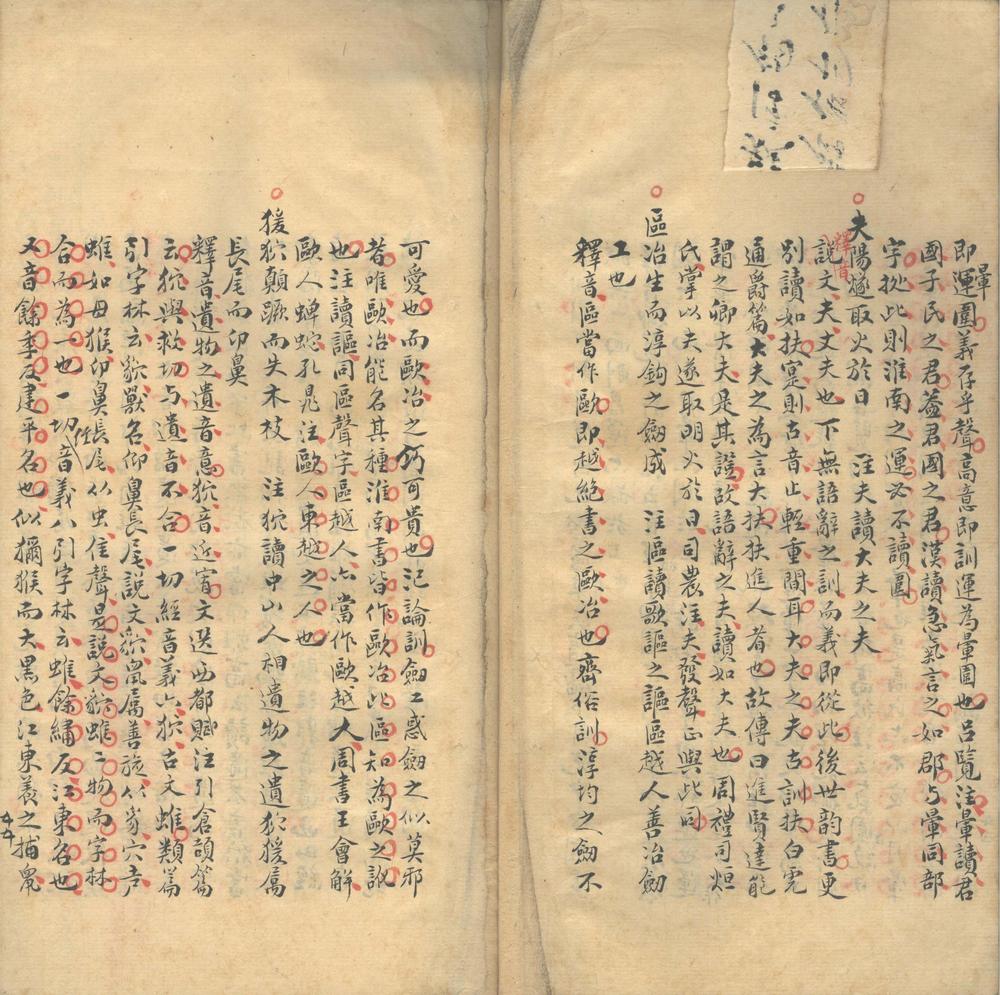 即運圍義存乎聲高意即訓運為暈圍也呂覽注暈讀君
暈
國子民之君蓋君國之君漢讀急氣言之如郡与暈同部
字從此則淮南之運必不讀圍
夫陽燧取火於日 注夫讀大夫之夫
釋音
說文夫丈夫也下無語辭之訓而義即從此後世韵書更
別讀如扶寔則古音止輕重間耳大夫之夫古訓扶白虎
通爵篇大夫之為言大扶扶進人者也故傳曰進賢達能
謂之卿大夫是其證故語辭之夫讀如大夫也周禮司烜
氏掌以夫遂取明火於日司農注夫發聲正與此同
區冶生而淳鉤之劔成 注區讀歌謳之謳區越人善冶劔
工也
釋音區當作歐即越絶書之歐冶也齊俗訓淳均之劔不
可愛也而歐冶之巧可貴也氾論訓劔工惑劔之似莫邪
者唯歐冶能名其種淮南書皆作歐冶此區知為歐之訛
也注讀謳同區聲字區越人六當作歐越人周書王會解
歐人蟬蛇孔晁注歐人東越之人也
猨狖顛蹶而失木枝 注狖讀中山人相遺物之遺狖猨屬
長尾而卬鼻
釋音遺物之遺音意狖音近寊文選西都賦注引倉頡篇
云狖與救切与遺音不合一切經音義六狖古文蜼類篇
引字林云貁獸名仰鼻長尾說文貁鼠屬善旋从豸穴声
蜼如母猴卬鼻長尾从虫隹聲是說文貁蜼二物而字林
合而為一也一切音義八引字林云蜼餘繡反江東名也
又音餘季反建平名也似獼猴而大黑色江東養之捕鼠